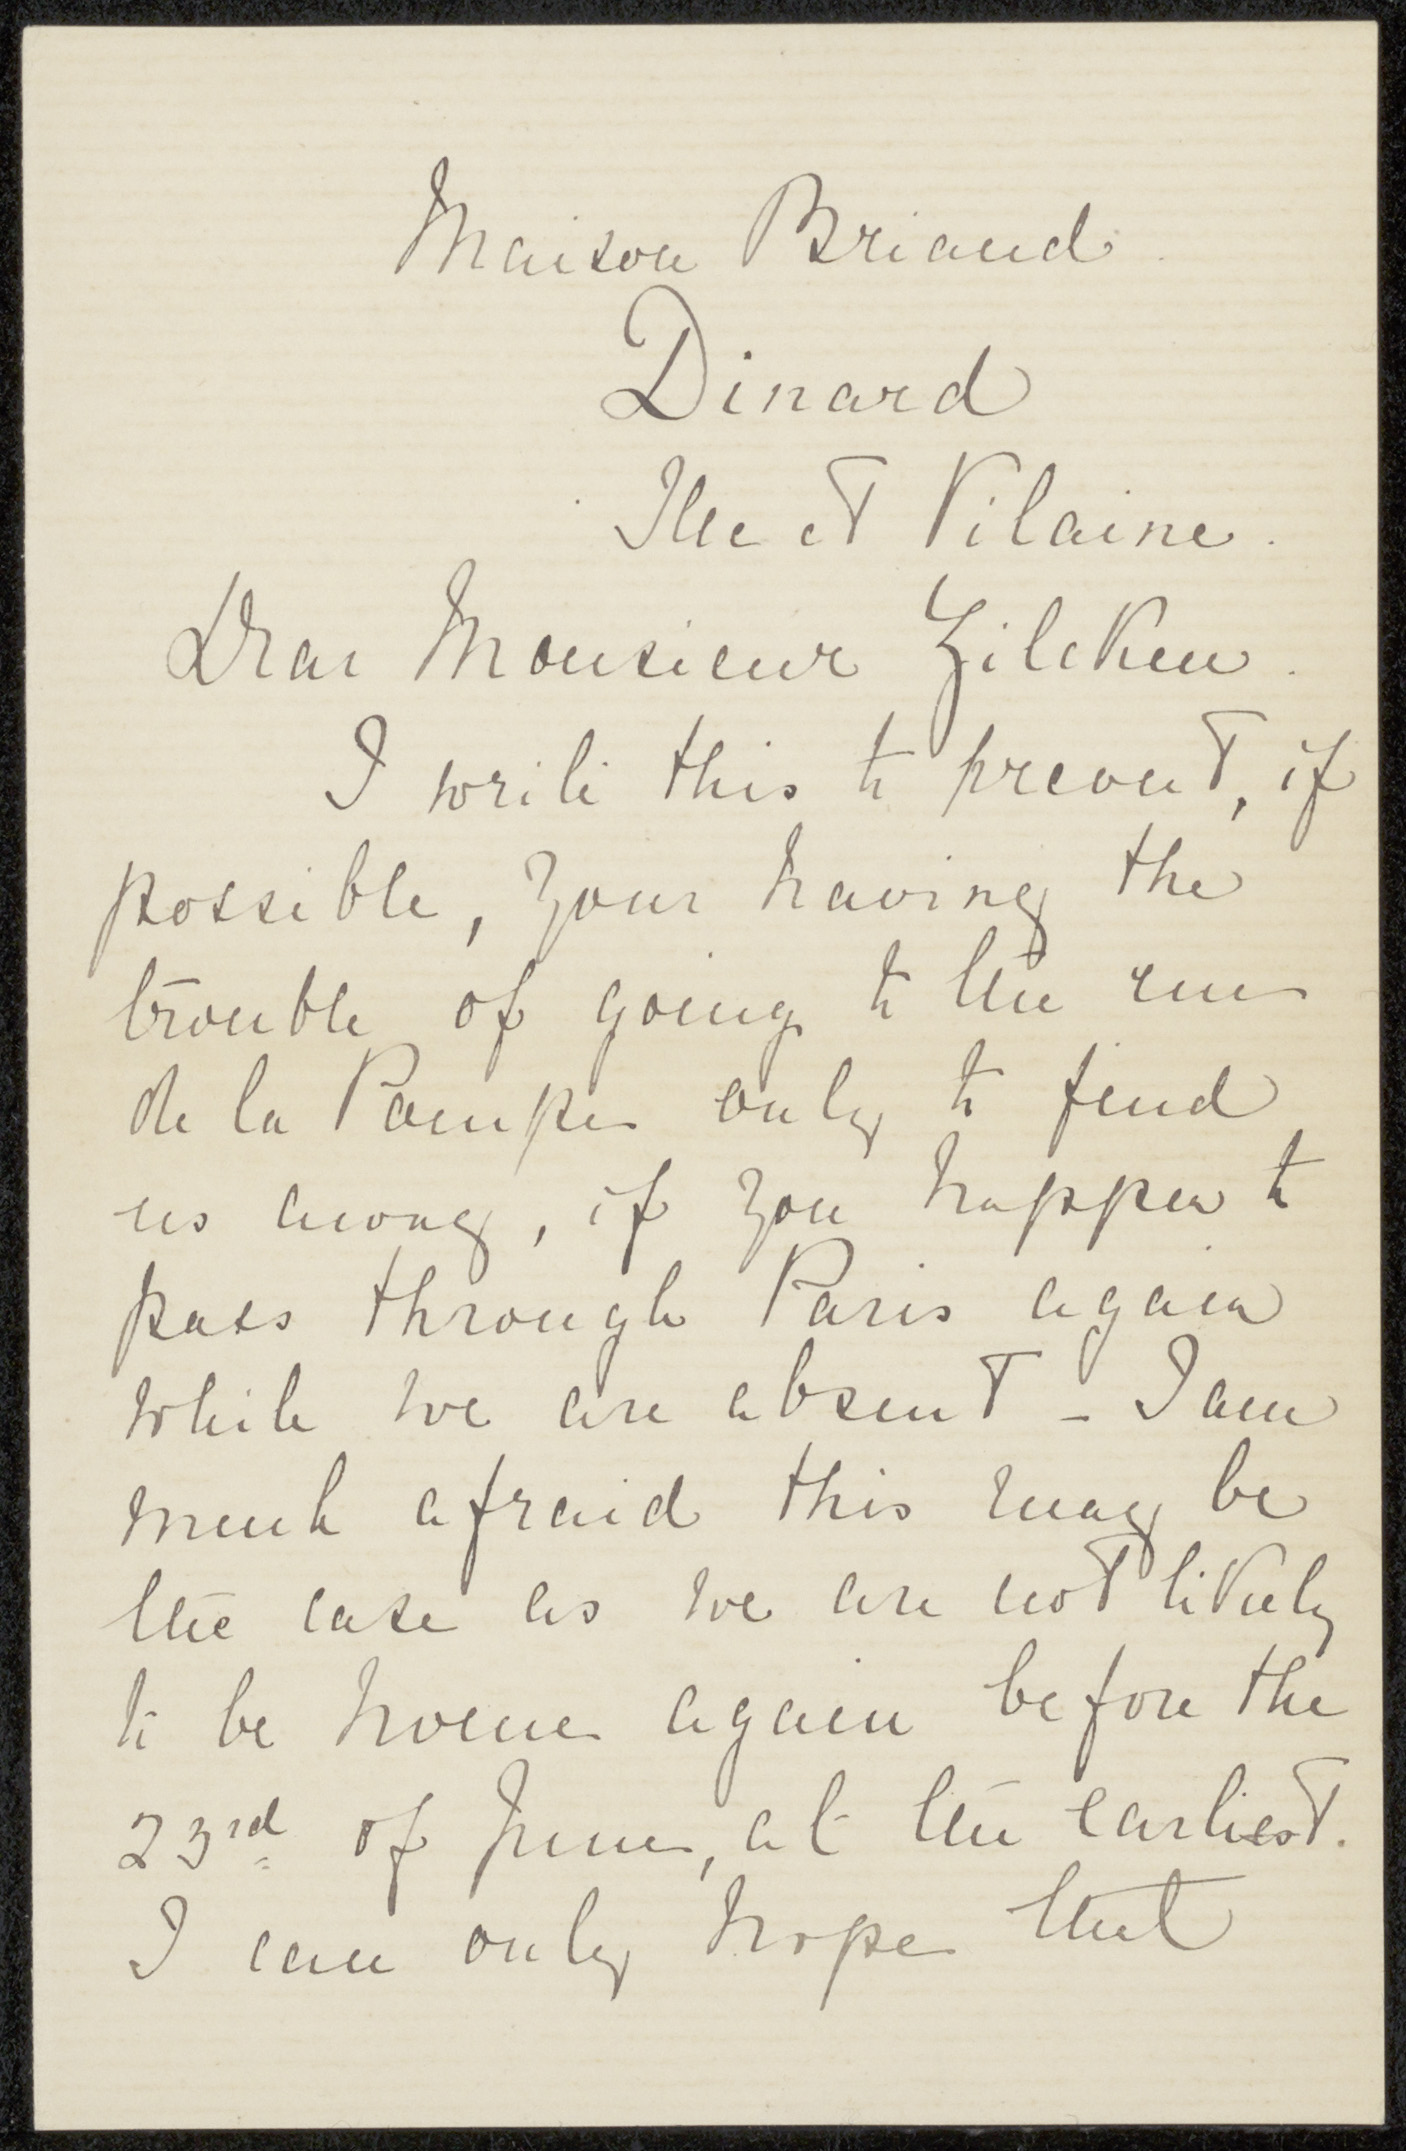 Maison Briand.
Dinard
Ille et Vilaine.
Dear Monsieur Zilcken.
I write this to prevent, if
possible, your having the
trouble of going to the rue
de la Pompe only to find
us away, if you happen to
pass through Paris again
while we are absent - I am
much afraid this may be
the case as we are not likely
to be home again before the
23rd of June, at the earliest.
I can only hope that